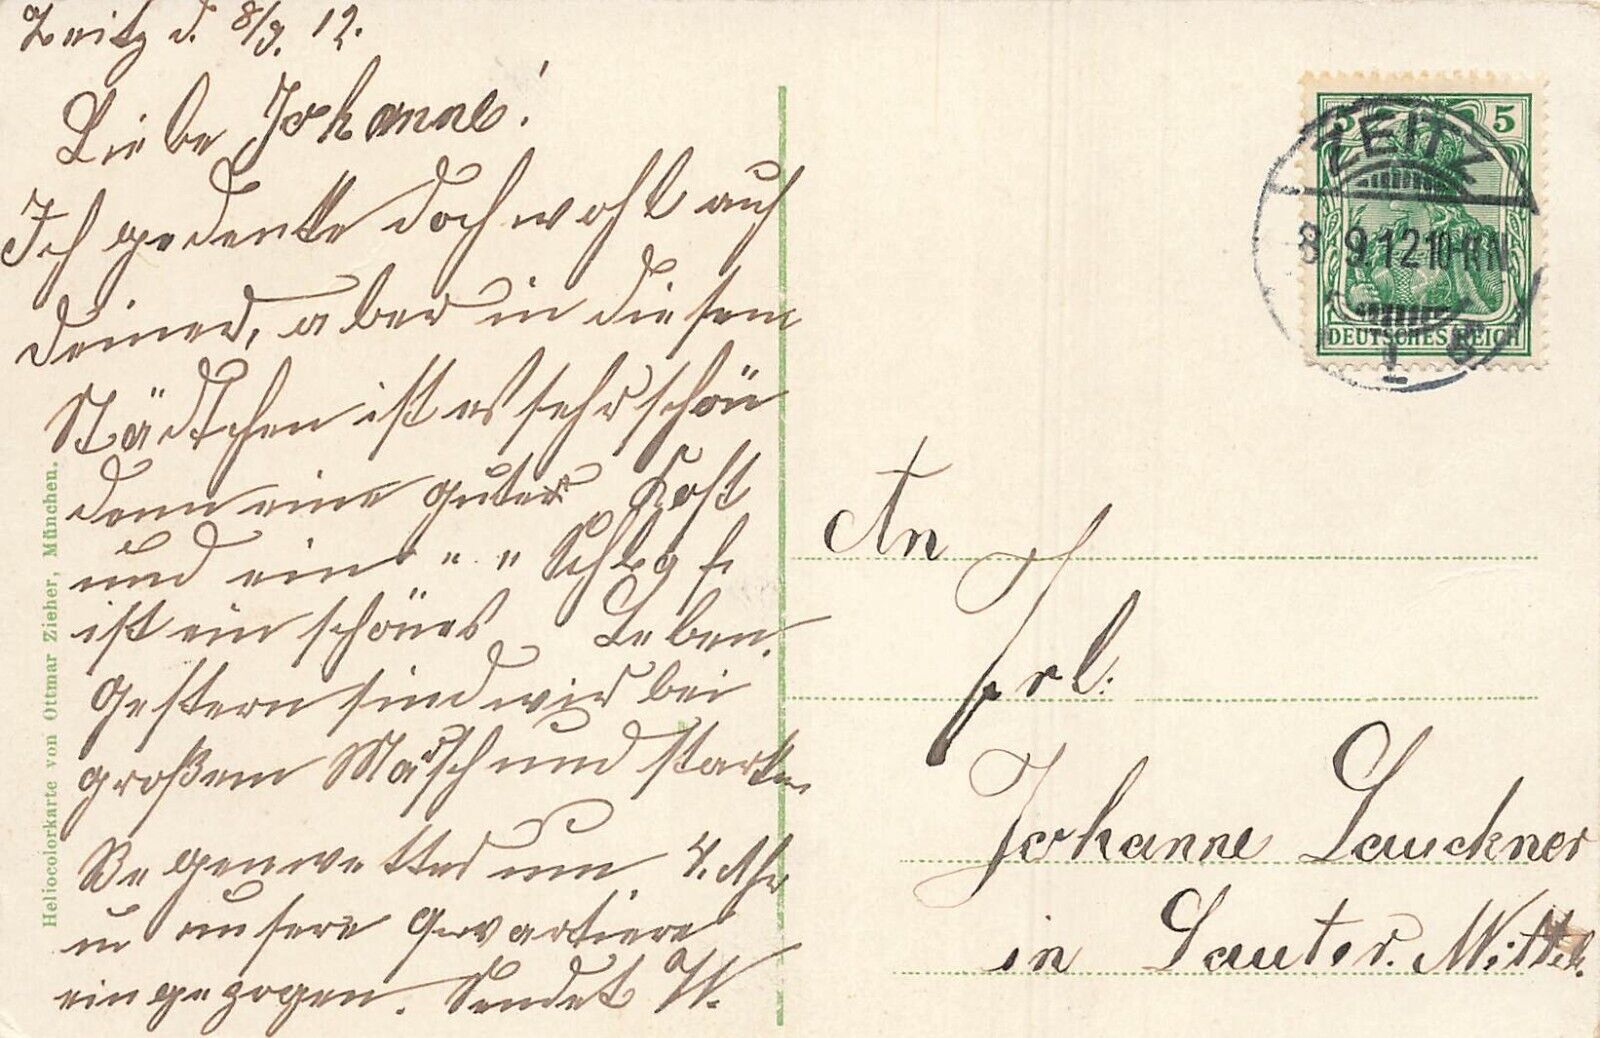 Zeitz d. 8/9. 12.
Liebe Johanne!
Ich gedenke doch wohl auch
deiner, aber in diesem
Städtchen ist es sehr schön
denn eine guter Kost
und ein " " Schlaf
ist ein schönes Leben.
Gestern sind wir bei
großem Marsch und starken
Regenwetter um 4. Uhr
in unsere Qvartiere
eingezogen. Sendet W.
Heliocolorkarte von Ottmar Zieher, München.
5 5
DEUTSCHES REICH
ZEITZ
8.9.12 10-11 N
1
An
Frl.
Johanne Lauckner
in Lauter. Mittelst.